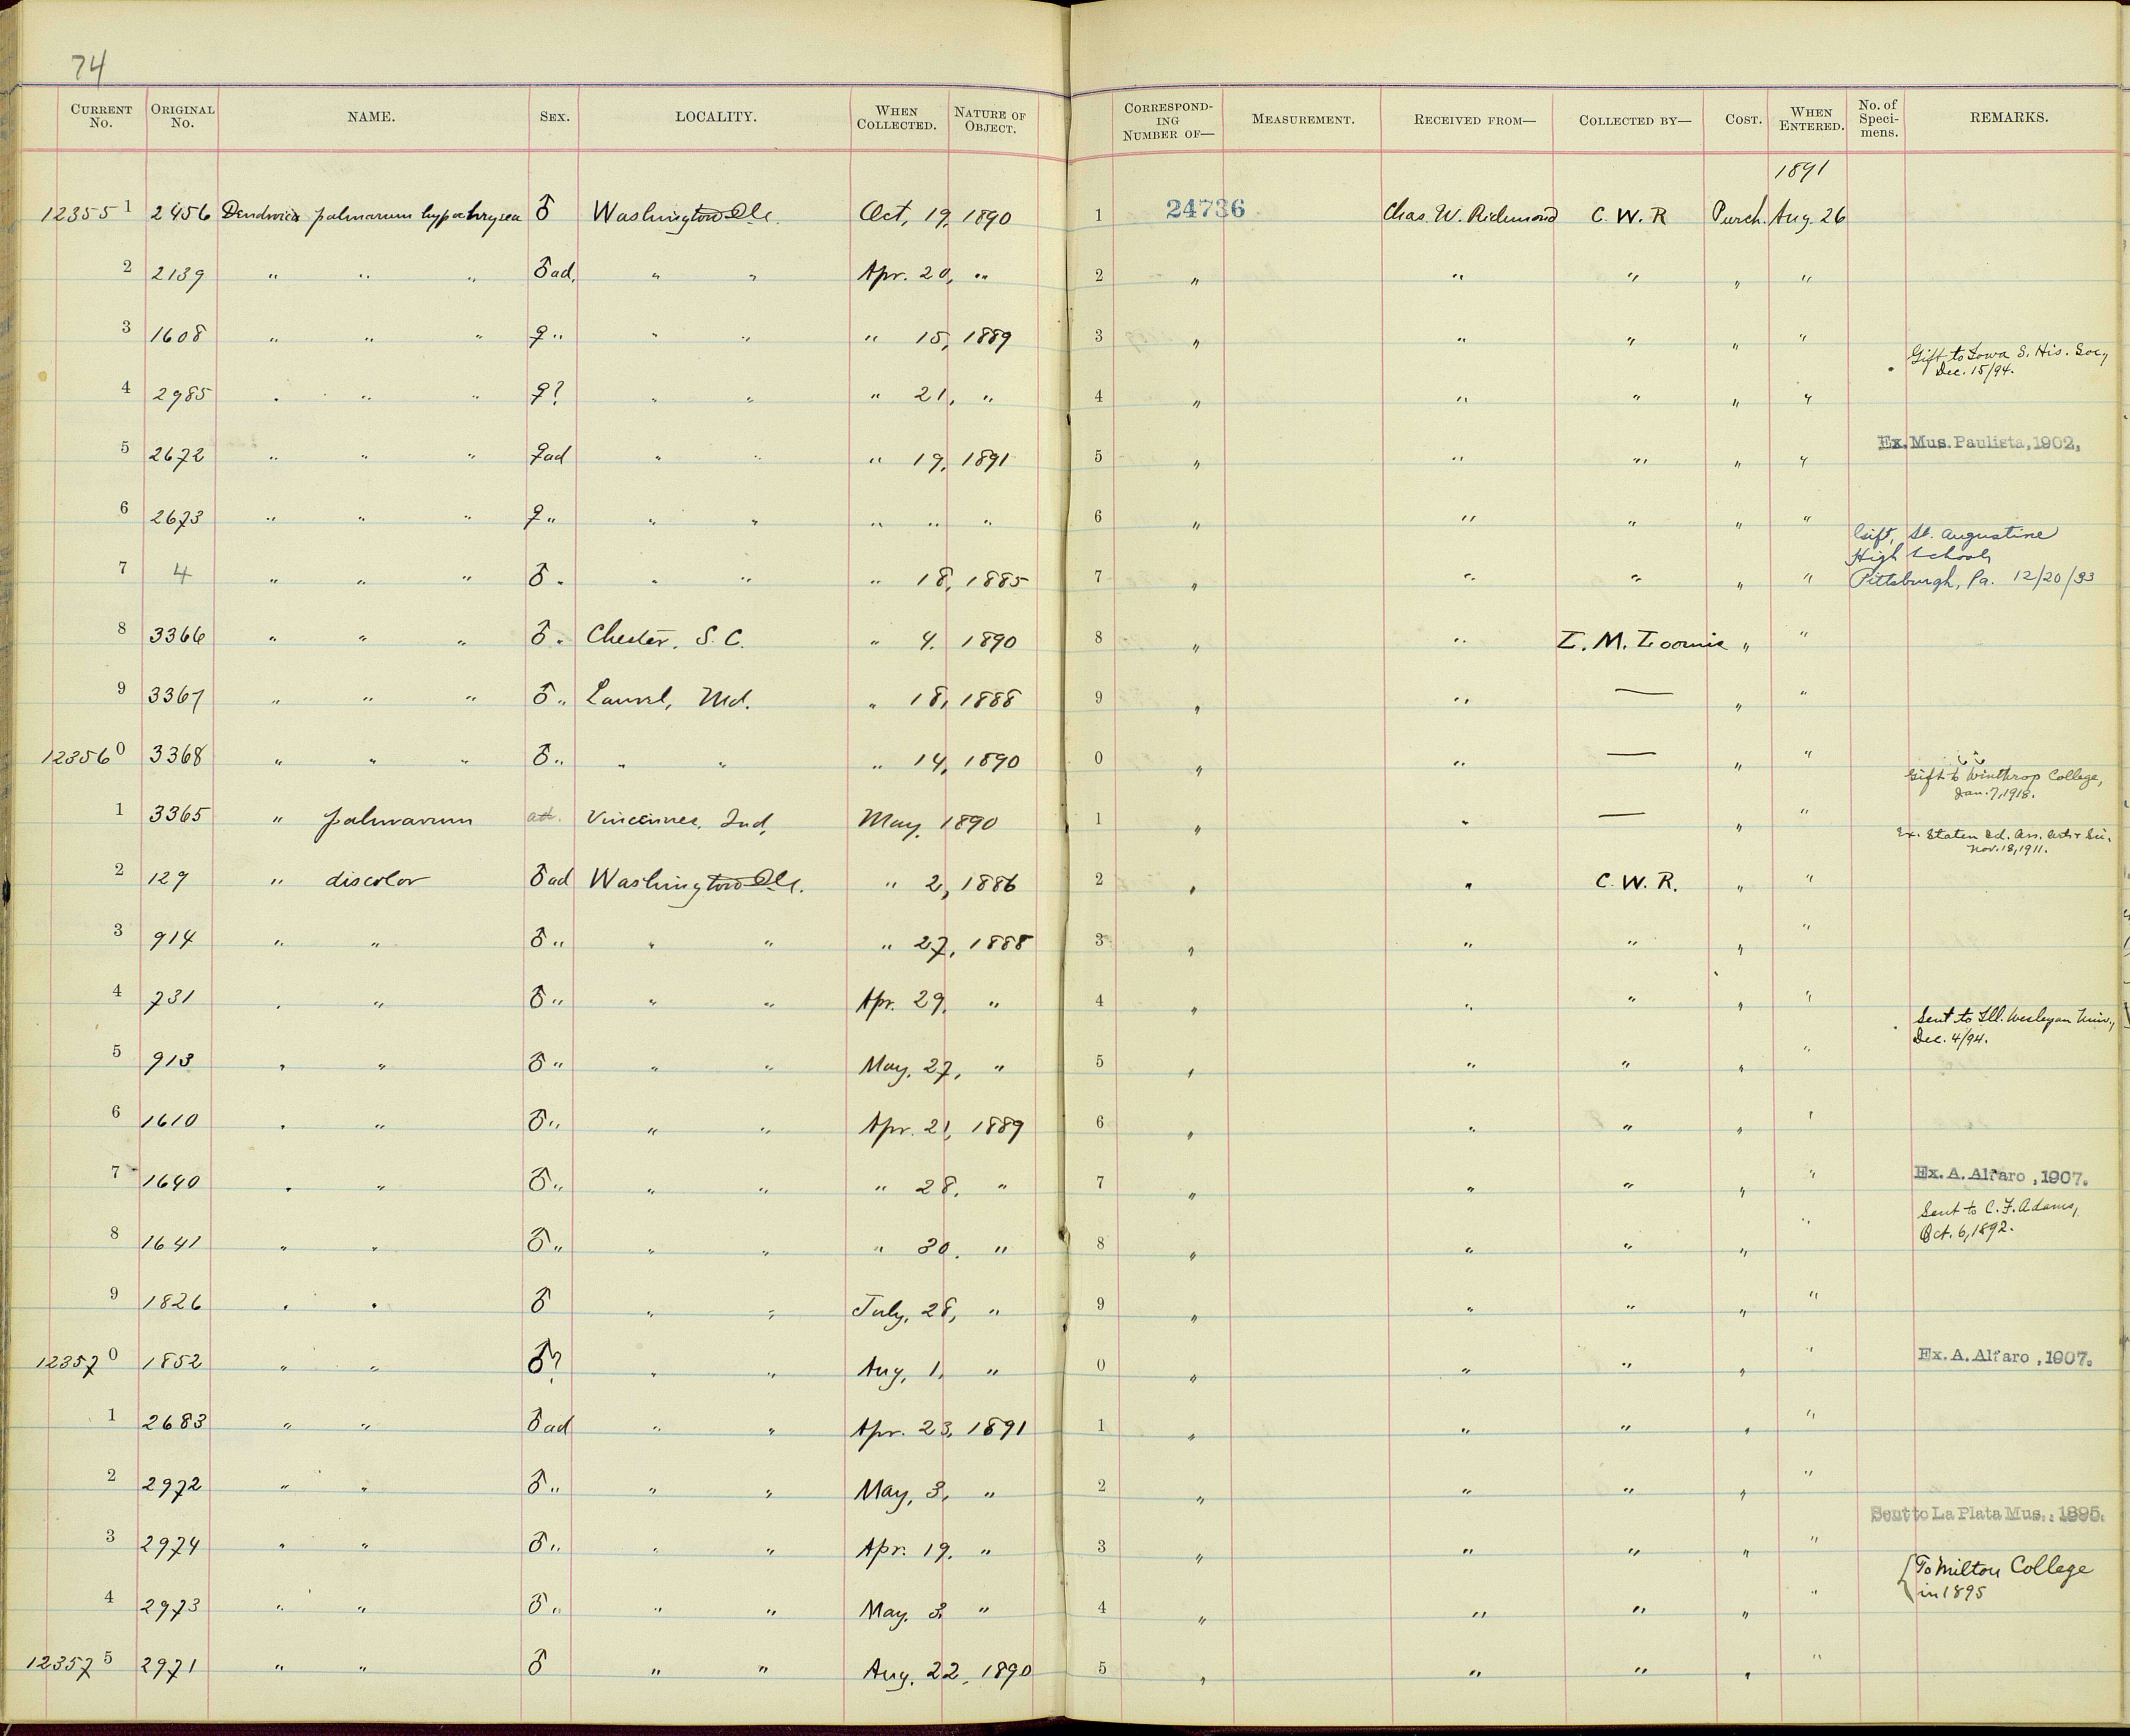 74
CURRENT No. ORIGINAL No. NAME. SEX. LOCALITY. WHEN COLLECTED. NATURE OF OBJECT. CORRESPONDING NUMBER OF— MEASUREMENT. RECEIVED FROM— COLLECTED BY— COST. WHEN ENTERED. No. of Specimens. REMARKS.
1891
12355 1 2456 Dendroica palmarum hypochrysea ♂ Washington D.C. Oct, 19, 1890 1 24736 Chas. W. Richmond C. W. R Purch. Aug. 26
2 2139 " " " ♂ ad, " " Apr. 20, " 2 " " " " "
3 1608 " " " ♀ " " " " 15, 1889 3 " " " " "
Gift to Iowa S. His. Soc,
Dec. 15/94.
4 2985 " " " ♀? " " " 21, " 4 " " " " "
5 2672 " " " ♀ ad " " " 19, 1891 5 " " " " " Ex. Mus. Paulista, 1902,
6 2673 " " " ♀ " " " " " " 6 " " " " "
Gift, St. Augustine
High School,
7 4 " " " ♂ " " " " 18, 1885 7 " " " " " Pittsburgh, Pa. 12/20/93
8 3366 " " " ♂ " Chester, S. C. " 4. 1890 8 " " L. M. Loomis " "
9 3367 " " " ♂ " Laurel, Md. " 18, 1888 9 " " — " "
12356 0 3368 " " " ♂ " " " " 14, 1890 0 " " — " "
Gift to Winthrop College,
Jan. 7, 1918.
1 3365 " palmarum ad. Vincennes, Ind, May, 1890 1 " " — " "
Ex. Staten Id. Ass. Arts & Sci.
Nov. 18, 1911.
2 129 " discolor ♂ ad Washington D.C. " 2, 1886 2 " " C. W. R. " "
3 914 " " ♂ " " " " 27, 1888 3 " " " " "
4 731 " " ♂ " " " Apr. 29, " 4 " " " " "
Sent to Ill. Wesleyan Univ.,
Dec. 4/94.
5 913 " " ♂ " " " May, 27, " 5 " " " " "
6 1610 " " ♂ " " " Apr. 21, 1889 6 " " " " "
7 1640 " " ♂ " " " " 28, " 7 " " " " " Ex. A. Alfaro, 1907.
Sent to C. F. Adams,
Oct. 6, 1892.
8 1641 " " ♂ " " " " 30. " 8 " " " " "
9 1826 " " ♂ " " July, 28, " 9 " " " " "
12357 0 1852 " " ♂? " " Aug, 1, " 0 " " " " " Ex. A. Alfaro, 1907.
1 2683 " " ♂ ad " " Apr. 23, 1891 1 " " " " "
2 2972 " " ♂ " " " May, 3, " 2 " " " " "
Sent to La Plata Mus.: 1895.
3 2974 " " ♂ " " " Apr. 19, " 3 " " " " "
To Milton College
in 1895
4 2973 " " ♂ " " " May. 3, " 4 " " " " "
12357 5 2971 " " ♂ " " Aug. 22, 1890 5 " " " " "